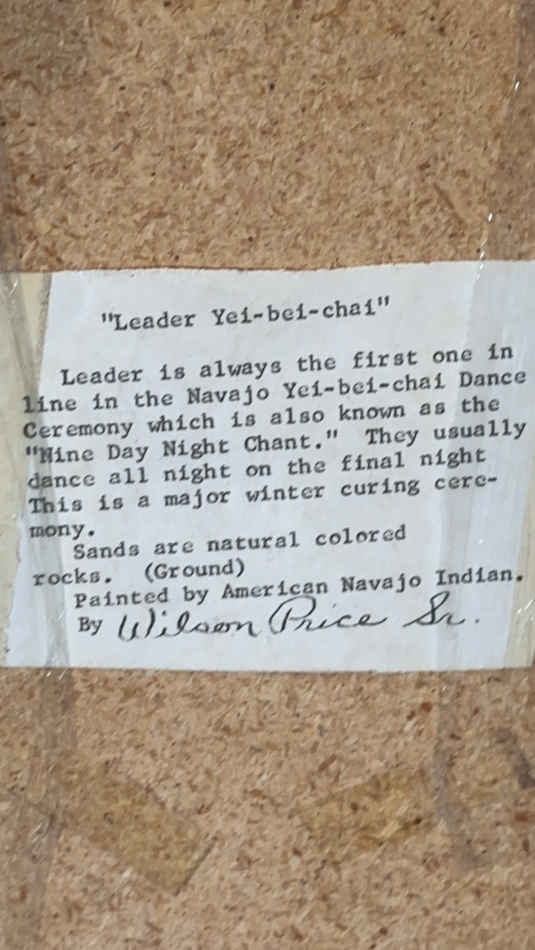 "Leader Yei-bei-chai"
Leader is always the first one in
line in the Navajo Yei-bei-chai Dance
Ceremony which is also known as the
"Nine Day Night Chant." They usually
dance all night on the final night
This is a major winter curing cere-
mony.
Sands are natural colored
rocks. (Ground)
Painted by American Navajo Indian.
By Wilson Price Sr.